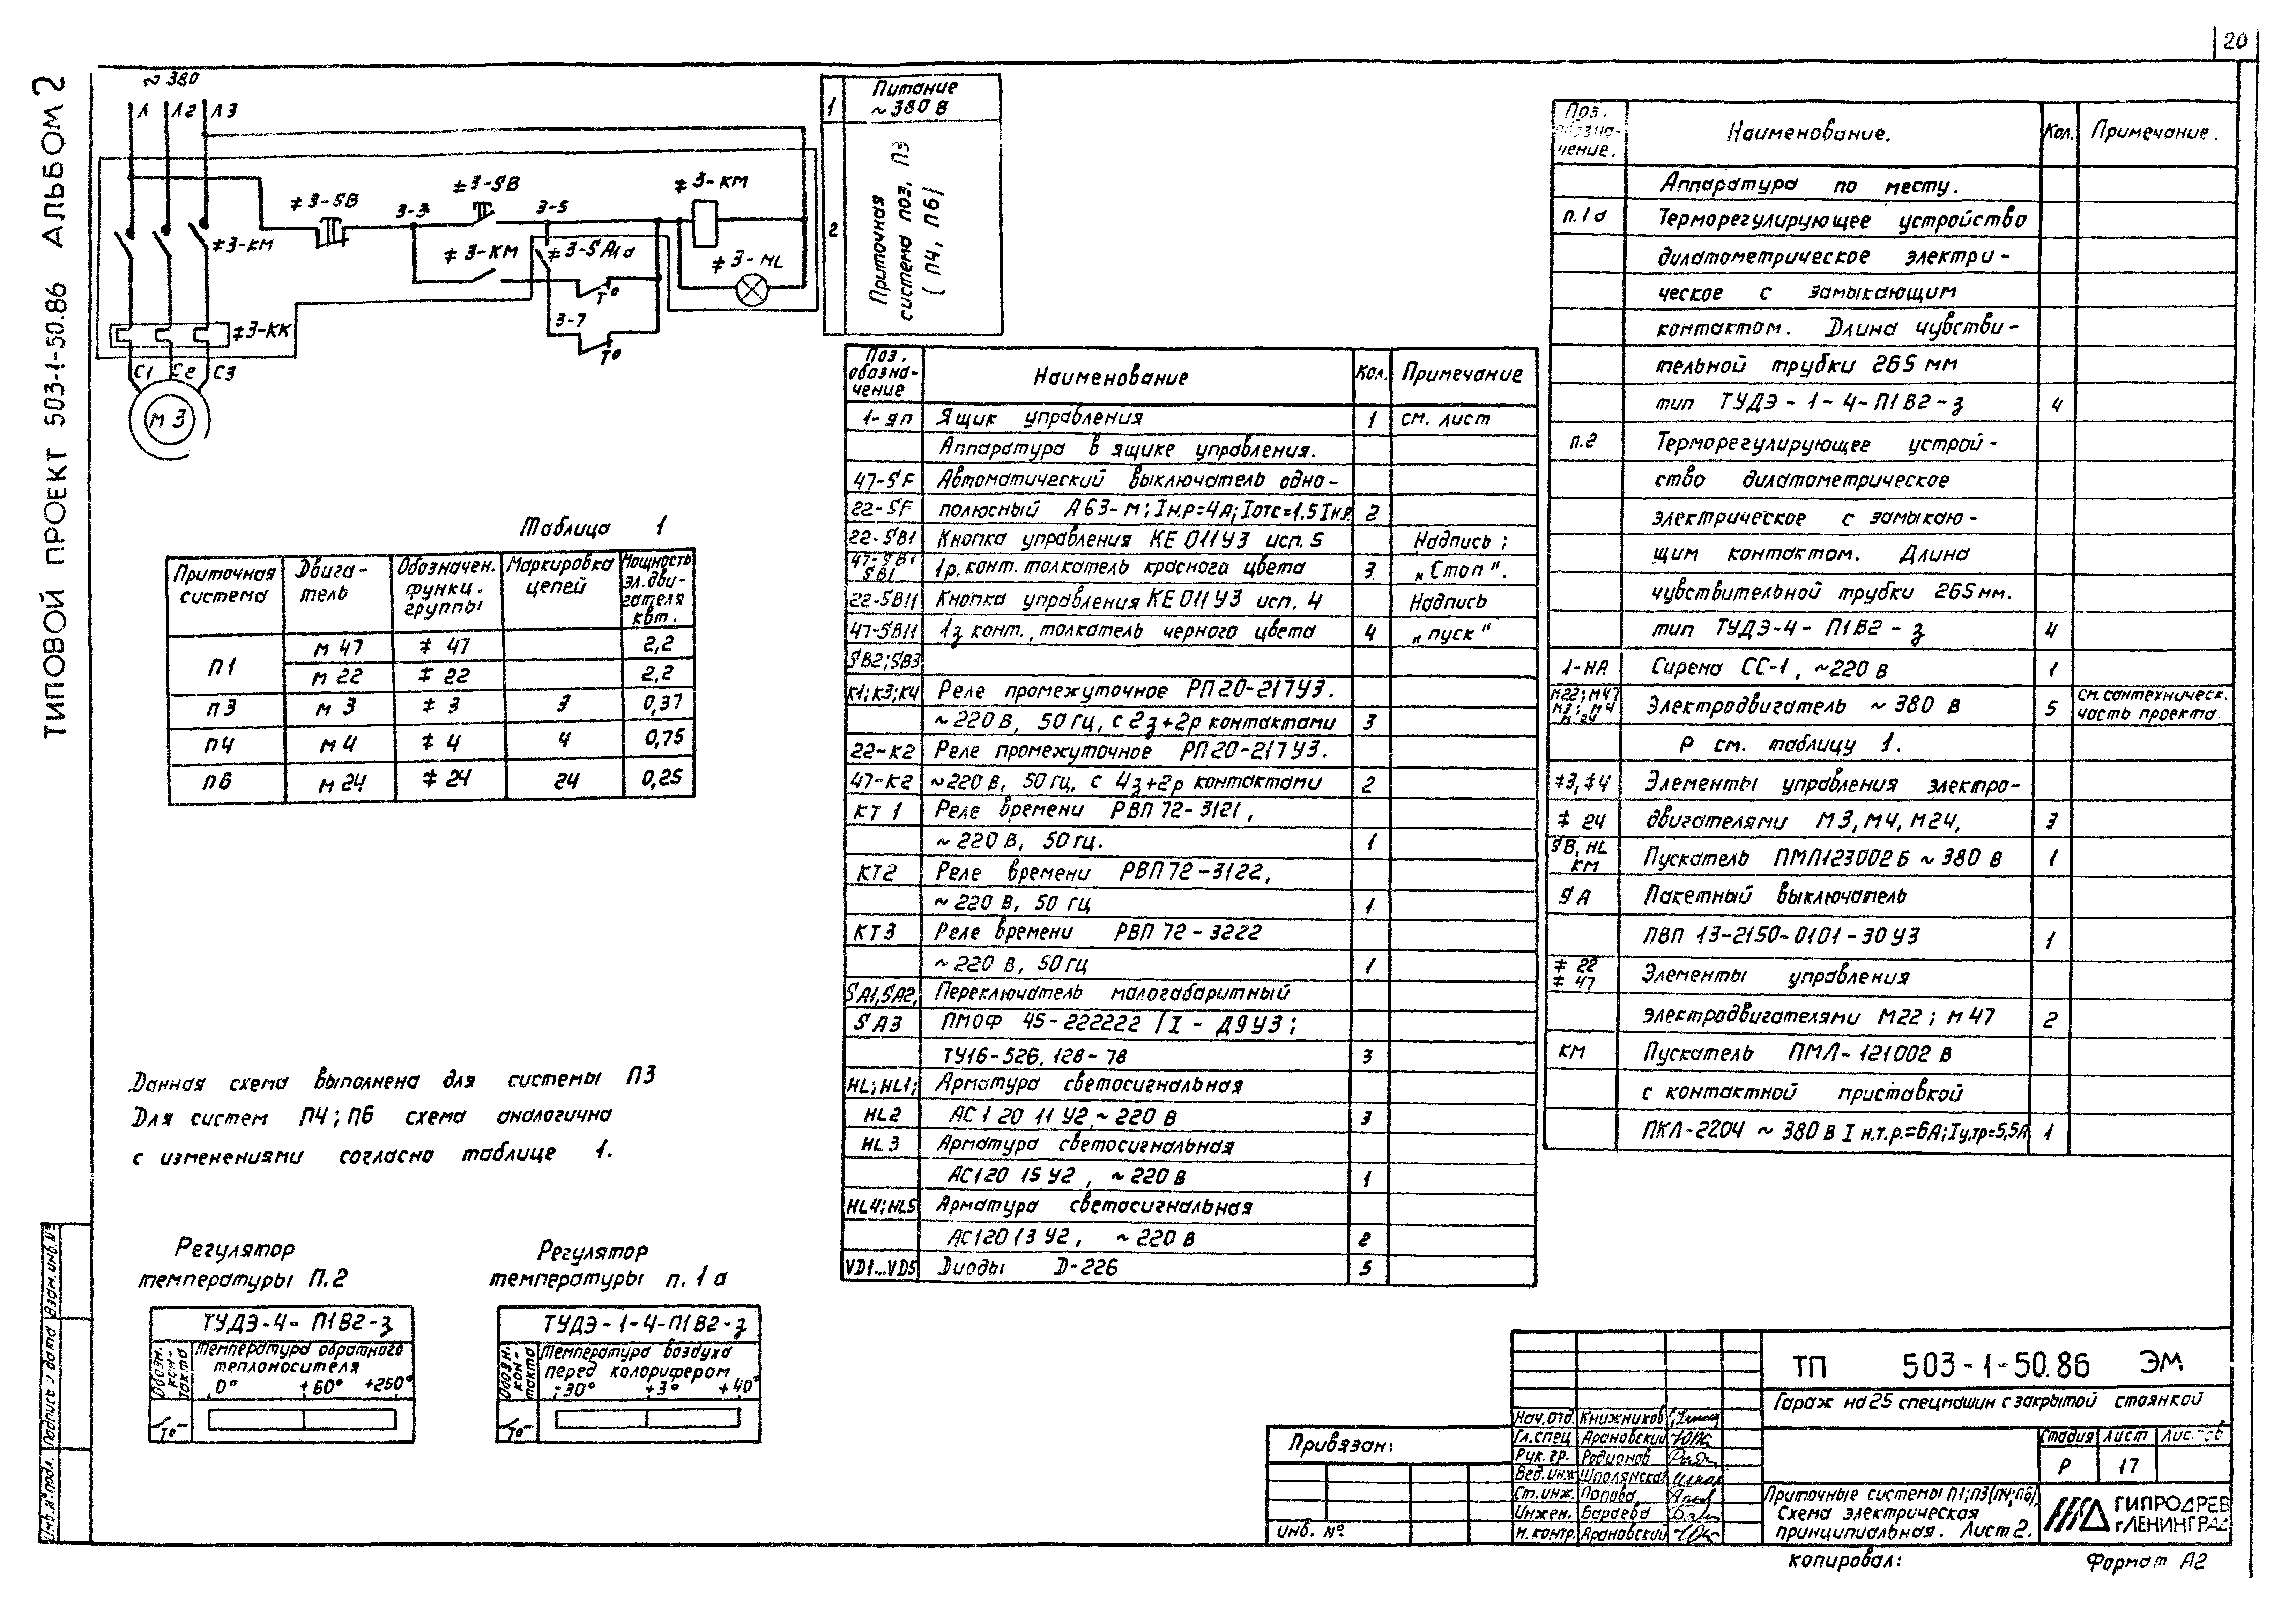 20
ТИПОВОЙ ПРОЕКТ 503-1-50.86 АЛЬБОМ 2
~ 380
Л Л2 Л3
≠3-SB
≠3-SB
3-3
3-5
≠3-КМ
≠3-КМ
≠3-КМ
≠3-SA1а
≠3-HL
Т°
3-7
Т°
≠3-КК
С1 С2 С3
М3
1 Питание
~380 В
2 Приточная
система поз. П3
(П4, П6)
Таблица 1
Приточная система
Двига-
тель
Обозначен.
функц.
группы
Маркировка
цепей
Мощность
эл.дви-
гателя
квт.
П1 М 47 ≠ 47 2,2
М 22 ≠ 22 2,2
П3 М 3 ≠ 3 3 0,37
П4 М 4 ≠ 4 4 0,75
П6 М 24 ≠ 24 24 0,25
Данная схема выполнена для системы П3
Для систем П4; П6 схема аналогична
с изменениями согласно таблице 1.
Регулятор
температуры П.2
ТУДЭ-4-П1В2-з
Обозн.
кон-
такта
Температура обратного
теплоносителя
0° +60° +250°
Т°
Регулятор
температуры п. 1а
ТУДЭ-1-4-П1В2-з
Обозн.
кон-
такта
Температура воздуха
перед колорифером
-30° +3° +40°
Т°
Поз.
обозна-
чение
Наименование
Кол.
Примечание
1-ЯП Ящик управления 1 см. лист
Аппаратура в ящике управления.
47-SF Автоматический выключатель одно-
22-SF полюсный А63-М; Iн.р=4А; Iотс=1.5Iн.р. 2
22-SB1 Кнопка управления КЕ 011У3 исп. 5 Надпись:
47-SB1
SB1 1р. конт. толкатель красного цвета 3 „Стоп".
22-SB11 Кнопка управления КЕ 011У3 исп. 4 Надпись
47-SB11 1з конт., толкатель черного цвета 4 „пуск"
SB2; SB3
К1; К3; К4 Реле промежуточное РП20-217У3.
~220 В, 50 Гц, с 2з+2р контактами 3
22-К2 Реле промежуточное РП20-217У3.
47-К2 ~220 В, 50 гц, с 4з+2р контактами 2
КТ 1 Реле времени РВП 72-3121,
~220 В, 50 гц. 1
КТ2 Реле времени РВП 72-3122,
~220 В, 50 гц 1
КТ3 Реле времени РВП 72-3222
~220 В, 50 Гц 1
SA1, SA2, Переключатель малогабаритный
SA3 ПМОФ 45-222222 / I - Д9У3;
ТУ16-526.128-78 3
HL; HL1; Арматура светосигнальная
HL2 АС 1 20 11 У2, ~220 В 3
HL3 Арматура светосигнальная
АС120 15 У2, ~220 В 1
HL4; HL5 Арматура светосигнальная
АС120 13 У2, ~220 В 2
VD1...VD5 Диоды D-226 5
Поз.
обозна-
чение.
Наименование.
Кол.
Примечание.
Аппаратура по месту.
п.1а Терморегулирующее устройство
дилатометрическое электри-
ческое с замыкающим
контактом. Длина чувстви-
тельной трубки 265 мм
тип ТУДЭ-1-4-П1В2-з 4
п.2 Терморегулирующее устрой-
ство дилатометрическое
электрическое с замыкаю-
щим контактом. Длина
чувствительной трубки 265 мм.
тип ТУДЭ-4-П1В2-з 4
1-НА Сирена СС-1, ~220 В 1
М22; М47
М3; М4
М24 Электродвигатель ~380 В 5 см. сантехническ.
часть проекта.
Р см. таблицу 1.
≠3, ≠4 Элементы управления электро-
≠ 24 двигателями М3, М4, М24, 3
SB, HL
КМ Пускатель ПМЛ123002Б ~380 В 1
SA Пакетный выключатель
ПВП 13-2150-0101-30У3 1
≠ 22
≠ 47 Элементы управления
электродвигателями М22; М47 2
КМ Пускатель ПМЛ-121002 В
с контактной приставкой
ПКЛ-2204 ~380 В Iн.т.р.=6А; Iу,тр=5,5А 1
Взам. инв. №
Подпись и дата
Инв. № подл.
Привязан:
Инв. №
Нач. отд. Книжников
Гл. спец Арановский
Рук. гр. Родионов
Вед. инж Шполянская
Ст. инж. Попова
Инжен. Бараева
Н. контр. Арановский
ТП 503-1-50.86 ЭМ.
Гараж на 25 спецмашин с закрытой стоянкой
Стадия Лист Листов
Р 17
Приточные системы П1; П3 (П4; П6).
Схема электрическая
принципиальная. Лист 2.
ГИПРОДРЕВ
г. ЛЕНИНГРАД
копировал: Формат А2